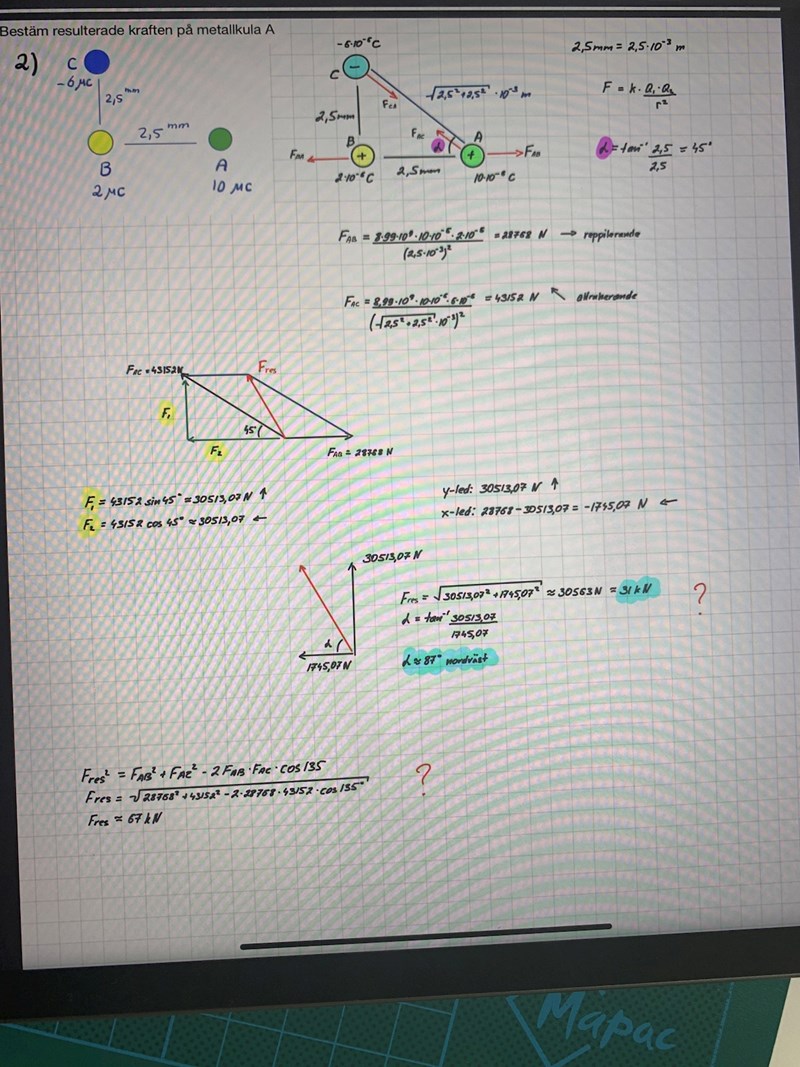 Bestäm resulterade kraften på metallkula A
2)
C
-6 μC
2,5 mm
2,5 mm
B
2 μC
A
10 μC
-6·10⁻⁶C
C
−
F_CA
√2,5²+2,5² ·10⁻³ m
2,5mm
F_AC
A
B
α
F_BA
+
+
F_AB
2·10⁻⁶C
2,5mm
10·10⁻⁶C
2,5mm = 2,5·10⁻³ m
F = k · Q₁·Q₂ / r²
α = tan⁻¹ 2,5 / 2,5 = 45°
F_AB = 8,99·10⁹·10·10⁻⁶·2·10⁻⁶ / (2,5·10⁻³)² = 28768 N → reppilerande
F_AC = 8,99·10⁹·10·10⁻⁶·6·10⁻⁶ / (√2,5²+2,5² ·10⁻³)² = 43152 N ↖ attraherande
F_AC = 43152N
F_res
F₁
45°
F₂
F_AB = 28768 N
F₁ = 43152 sin45° ≈ 30513,07 N ↑
F₂ = 43152 cos 45° ≈ 30513,07 ←
y-led: 30513,07 N ↑
x-led: 28768 − 30513,07 = −1745,07 N ←
30513,07 N
α
1745,07 N
F_res = √30513,07² + 1745,07² ≈ 30563 N = 31 kN
?
α = tan⁻¹ 30513,07 / 1745,07
α ≈ 87° nordväst
F_res² = F_AB² + F_AC² − 2 F_AB · F_AC · cos 135
F_res = √28768² + 43152² − 2·28768·43152·cos 135°
F_res ≈ 67 kN
?
Mapac